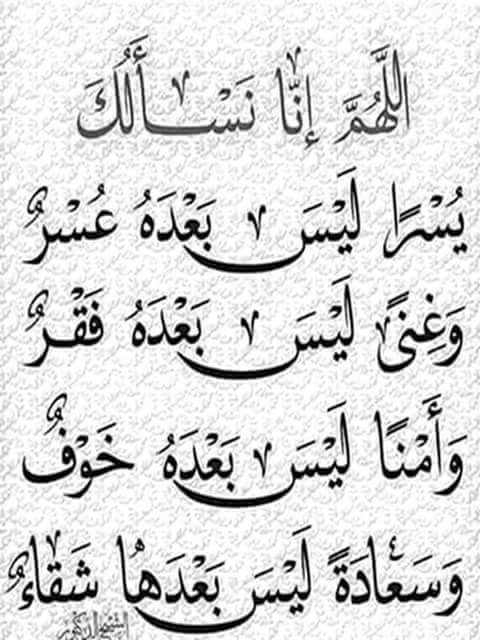 اللَّهُمَّ إِنَّا نَسْأَلُكَ
يُسْرًا لَيْسَ بَعْدَهُ عُسْرٌ
وَغِنًى لَيْسَ بَعْدَهُ فَقْرٌ
وَأَمْنًا لَيْسَ بَعْدَهُ خَوْفٌ
وَسَعَادَةً لَيْسَ بَعْدَهَا شَقَاءٌ